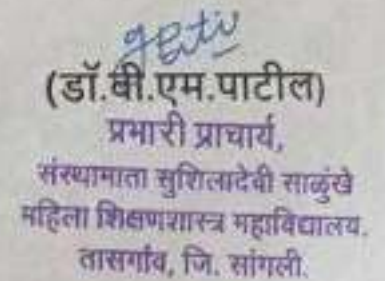 (डॉ.बी.एम.पाटील)
प्रभारी प्राचार्य,
संस्थामाता सुशिलादेवी साळुंखे
महिला शिक्षणशास्त्र महाविद्यालय.
तासगांव, जि. सांगली.